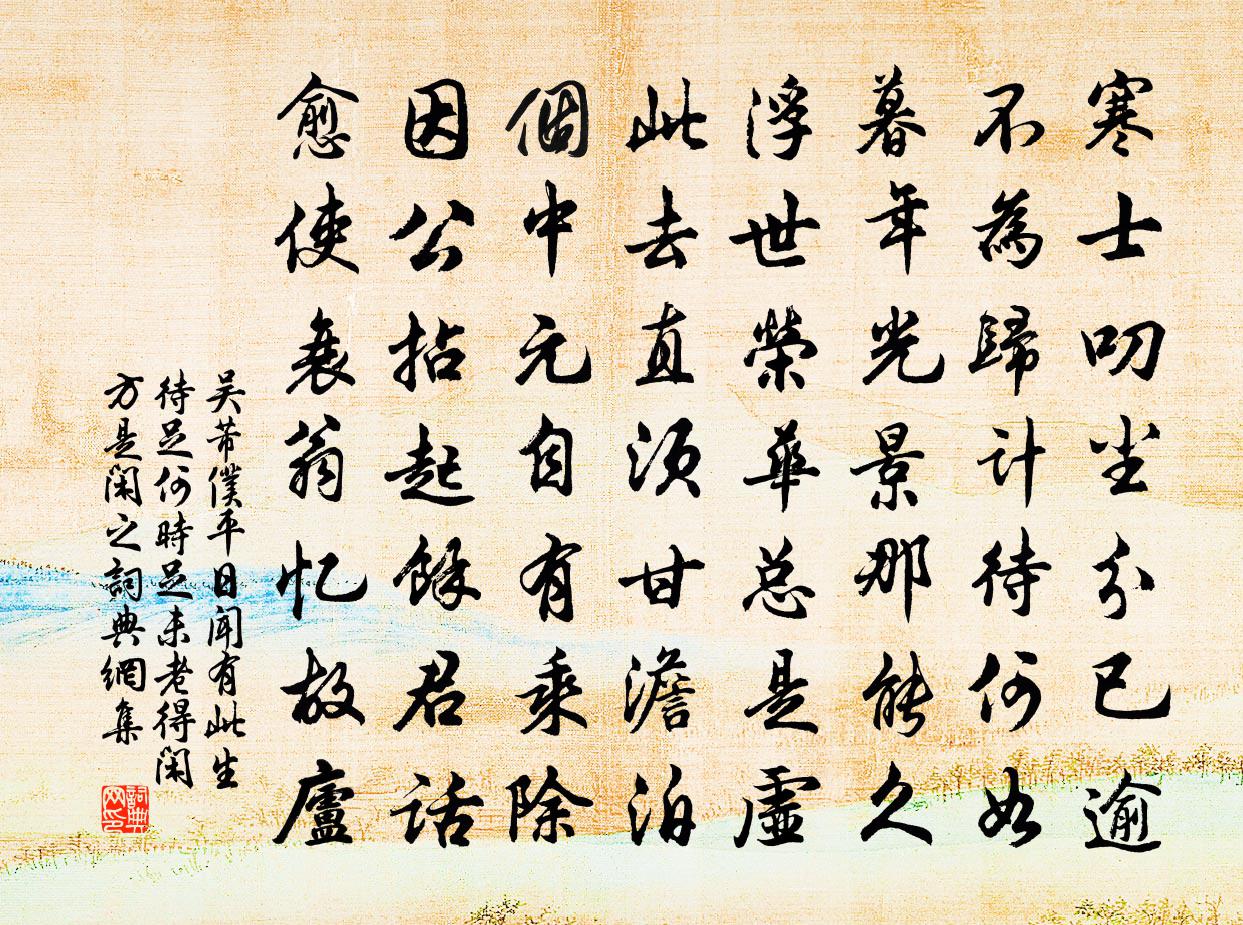 寒士叨坐分已逾
不為歸計待何如
暮年光景那能久
浮世榮華总是虛
此去直須甘澹泊
個中元自有乘除
因公拈起餘君話
愈使衰翁忆故廬
吳芾僕平日聞有此生
待足何時足未老得閑
方是閑之詞典網集
詞典网印